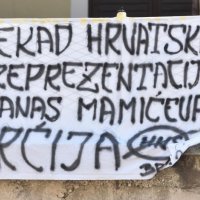 EKAD HRVATSK
REPREZENTACIJ
ANAS MAMIĆEVA
RĆIJA HNS